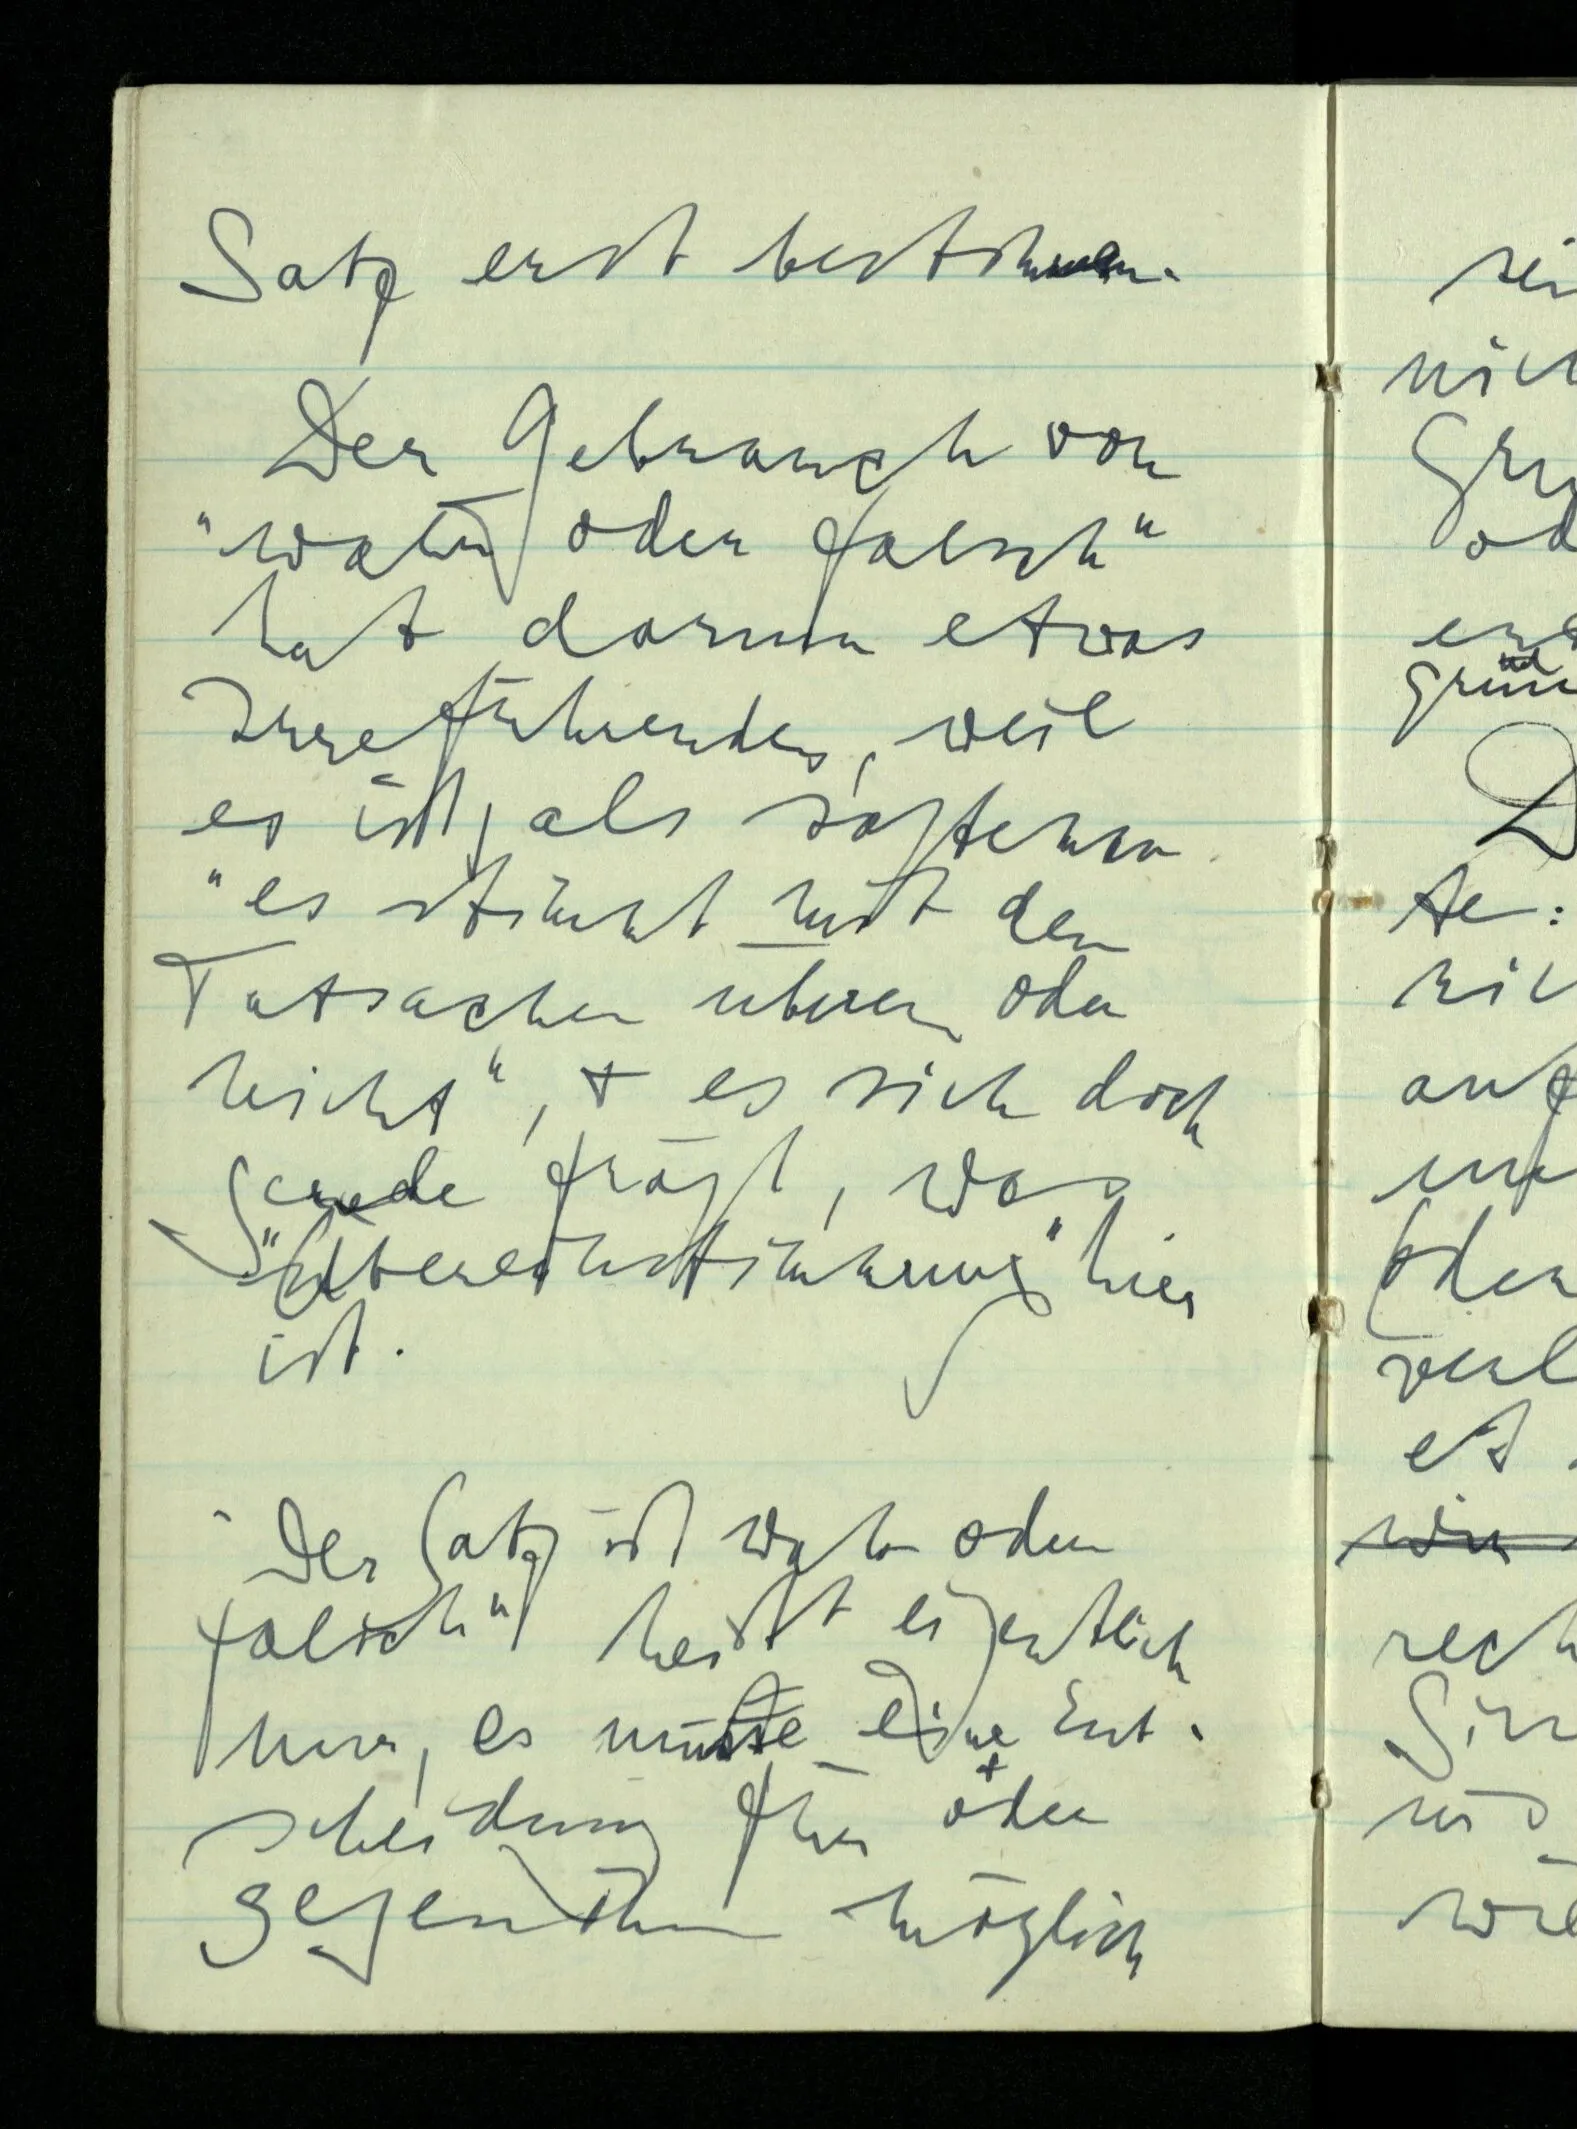 Satz erst bestimmen.
Der Gebrauch von
"wahr oder falsch"
hat darum etwas
Irreführendes, weil
es ist, als sagte man
"es stimmt mit den
Tatsachen überein oder
nicht", + es sich doch
gerade frägt, was
"Übereinstimmung" hier
ist.
"Der Satz ist wahr oder
falsch" heißt eigentlich
nur, es müsse eine Ent-
scheidung für oder
gegen ihn möglich
te:
oder